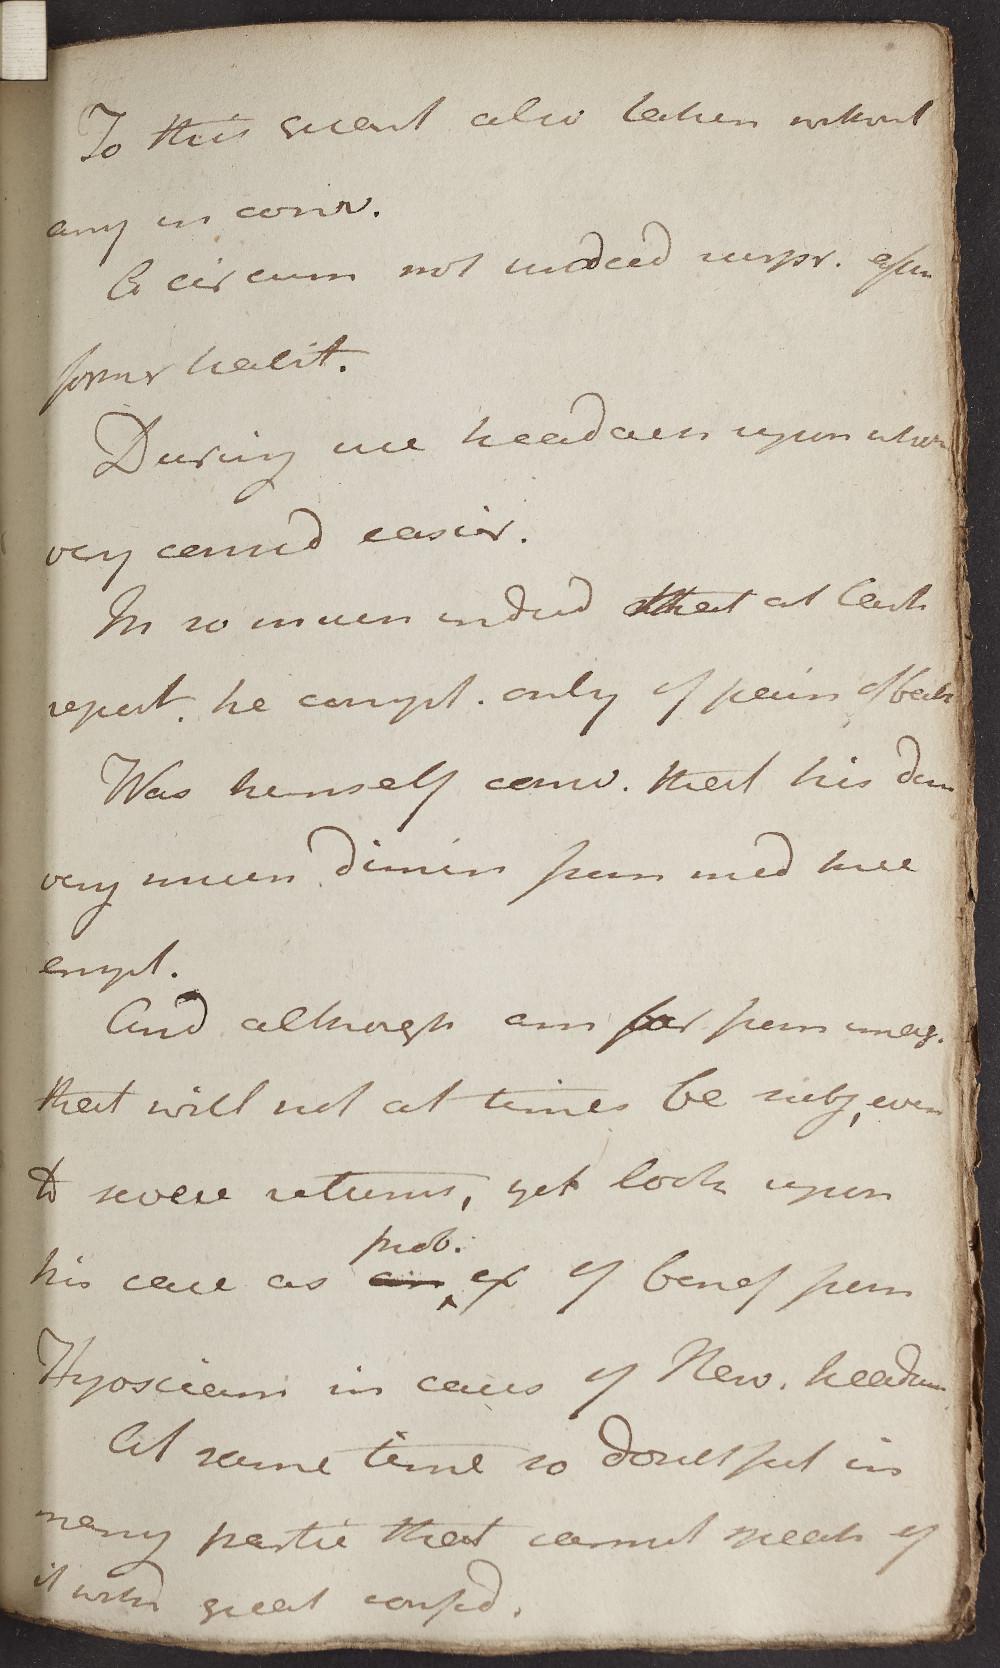 To this extent also taken without
any in conv.
A circum not indeed surpr. after
former habit.
During use headach upon whole
very consid easier.
In so much indeed that at last
report. he compl. only of pain of back
Was himself conv. that his
very much dimin from med here
empl.
And although am far from imag.
that will not at times be subj, even
to severe returns, yet look upon
prob.
his case as an ex of benef from
Hyosciam in cases of Nerv. headach
At same time so doubtful in
many partic that cannot speak of
it with great confid.